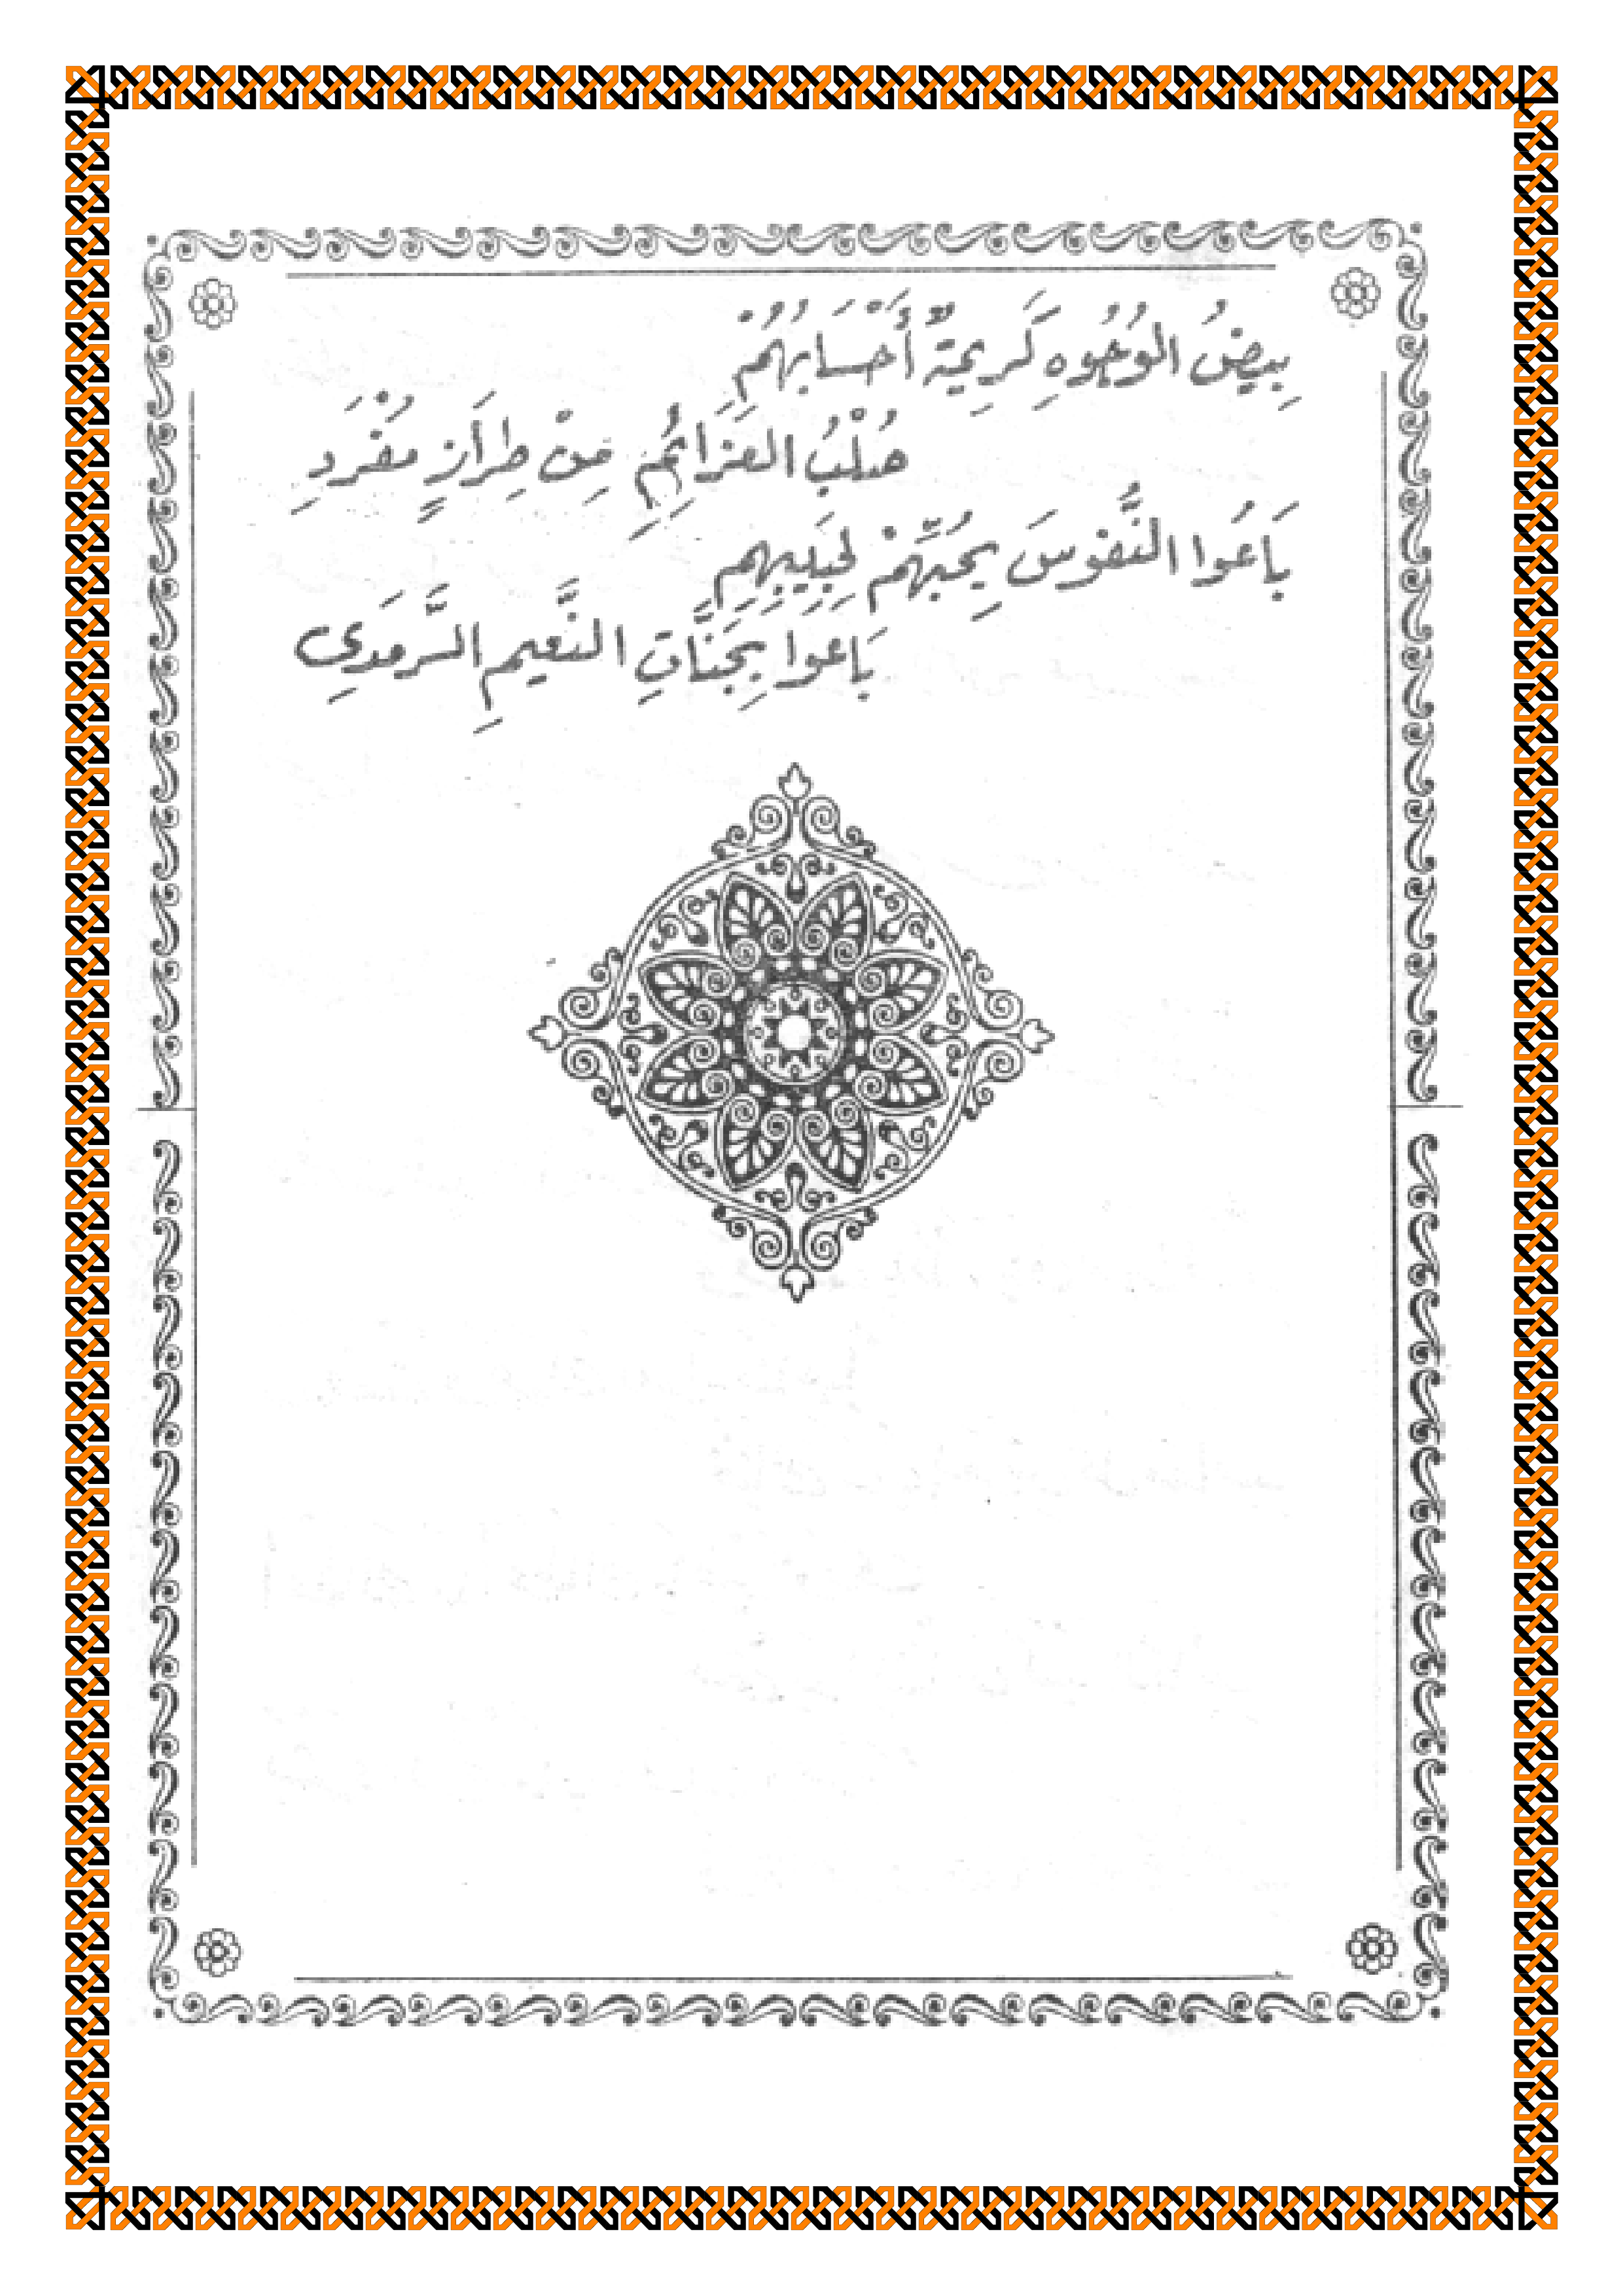 بِيضُ الوُجُوهِ كَرِيمَةٌ أَحْسَابُهُمْ
صُلْبُ العَزَائِمِ مِنْ طِرَازٍ مُفْرَدِ
بَاعُوا النُّفُوسَ بِحُبِّهِمْ لِحَبِيبِهِمِ
بَاعُوا بِجَنَّاتِ النَّعِيمِ السَّرمَدِي